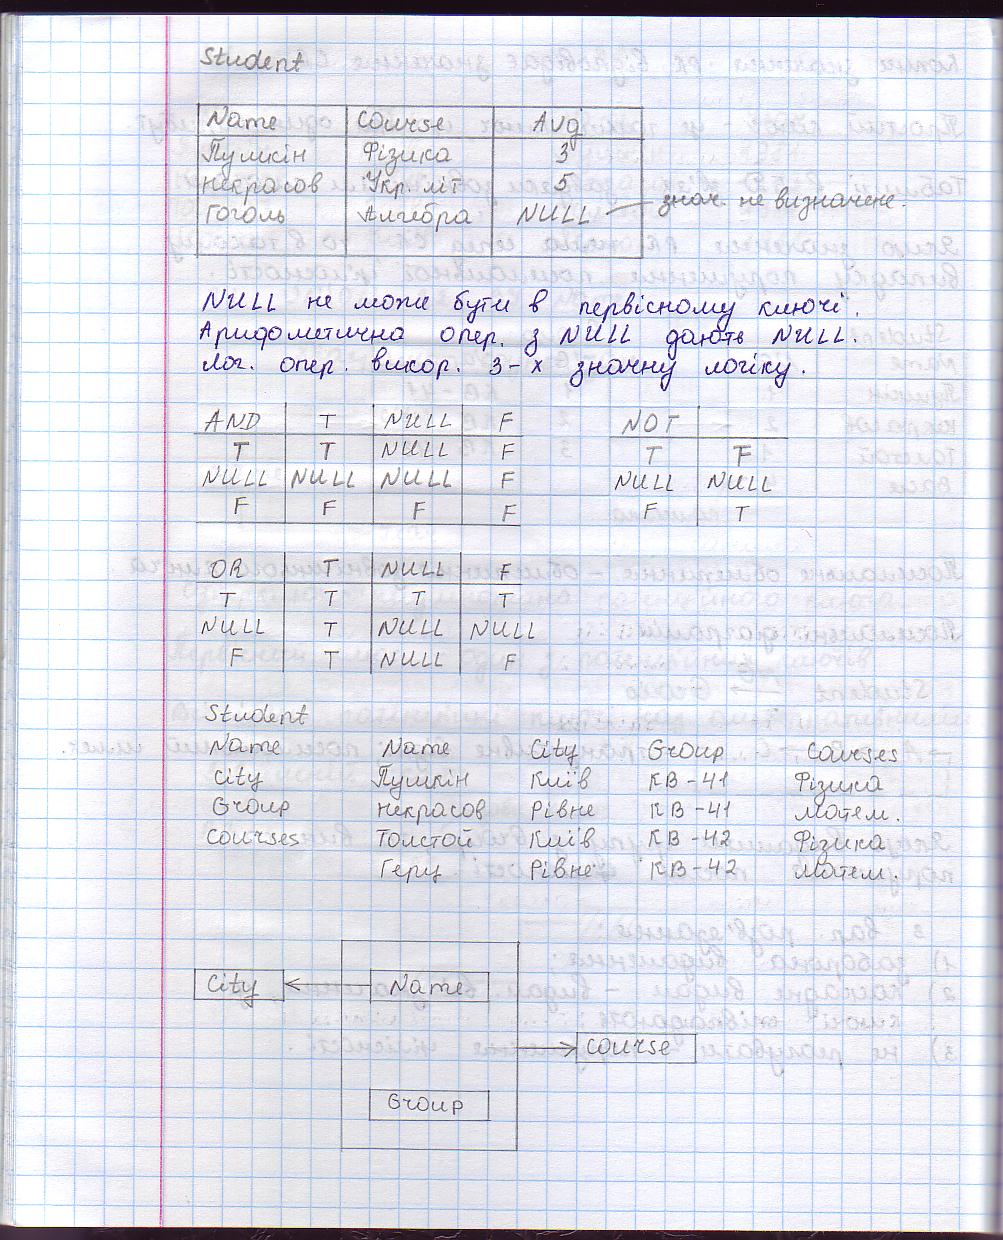 Student
Name Course Avg
Пушкін Фізика 3
Некрасов Укр. літ 5
Гоголь Алгебра NULL — знач. не визначене.
NULL не може бути в первісному ключі.
Аридометична опер. з NULL дають NULL.
Лог. опер. викор. 3-х значну логіку.
AND T NULL F
T T NULL F
NULL NULL NULL F
F F F F
NOT
T F
NULL NULL
F T
OR T NULL F
T T T T
NULL T NULL NULL
F T NULL F
Student
Name Name City Group Courses
City Пушкін Київ КВ-41 Фізика
Group Некрасов Рівне КВ-41 Матем.
Courses Толстой Київ КВ-42 Фізика
Герц Рівне КВ-42 Матем.
City Name
Course
Group